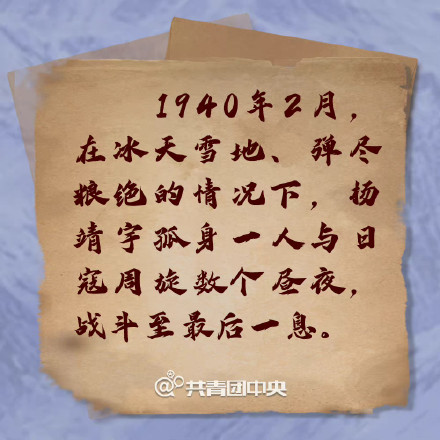 1940年2月，
在冰天雪地、弹尽
粮绝的情况下，杨
靖宇孤身一人与日
寇周旋数个昼夜，
战斗至最后一息。
@共青团中央